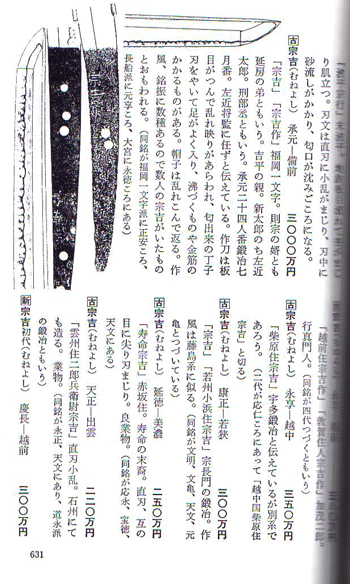 り肌立つ。刃文は直刃に小乱がまじり、刃中に
砂流しがかかり、匂口が沈みごころになる。
古宗吉(むねよし) 承元―備前 三〇〇〇万円
「宗吉」「宗吉作」福岡一文字。則宗の婿とも
延房の弟ともいう。吉平の親。新太郎のち左近
太郎。刑部丞ともいう。承元二十四人番鍛冶七
月番。左近将監に任ずと伝えている。作刀は板
目がつんで乱れ映りがあらわれ、匂出来の丁子
刃をやいて足がよく入り、沸づくものや金筋の
かかるものがある。帽子は乱れこんで返る。作
風、銘振に数種あるので数人の宗吉がいたもの
とおもわれる。(同銘が福岡一文字派に正安ころ、
長船派に元亨ころ、大宮に永徳ころにある)
「越前住宗吉作」「敦賀住人宗吉作」加茂二郎。
行真門人。(同銘が四代つづくともいう)
古宗吉(むねよし) 永享―越中 三五〇万円
「柴原住宗吉」宇多鍛冶と伝えているが別系で
あろう。(二代が応仁ころにあって「越中国柴原住
宗吉」と切る)
古宗吉(むねよし) 康正―若狭 三〇〇万円
「宗吉」「若州小浜住宗吉」宗長門の鍛冶。作
風は藤島系に似る。(同銘が文明、文亀、天文、元
亀とつづいている)
古宗吉(むねよし) 延徳―美濃 二五〇万円
「寿命宗吉」赤坂住。寿命の末裔。直刃、互の
目に尖り刃まじり。良業物。(同銘が応永、宝徳、
天文にある)
古宗吉(むねよし) 天正―出雲 二二〇万円
「雲州住二郎兵衛尉宗吉」直刃小乱。石州にて
も造る。業物。(同銘が永正、天文にあり、道永派
の鍛冶ともいう)
新宗吉初代(むねよし) 慶長―越前 三〇〇万円
631